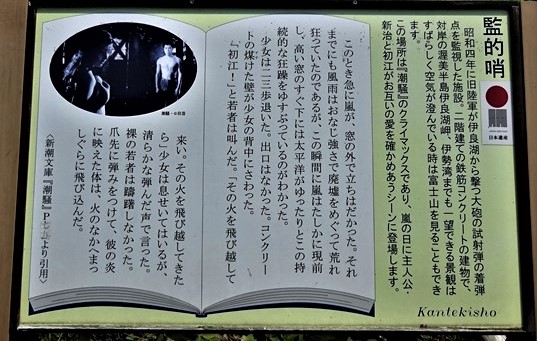 監的哨
日本遺産
昭和四年に旧陸軍が伊良湖から撃つ大砲の試射弾の着弾
点を監視した施設。二階建ての鉄筋コンクリートの建物で、
対岸の渥美半島伊良湖岬、伊勢湾までも一望できる景観は
すばらしく空気が澄んでいる時は富士山を見ることもでき
ます。
この場所は『潮騒』のクライマックスであり、嵐の日に主人公・
新治と初江がお互いの愛を確かめあうシーンに登場します。
このとき急に嵐が、窓の外で立ちはだかった。それ
までにも風雨はおなじ強さで廃墟をめぐって荒れ
狂っていたのであるが、この瞬間に嵐はたしかに現前
し、高い窓のすぐ下には太平洋がゆったりとこの持
続的な狂躁をゆすぶっているのがわかった。
少女は二三歩退いた。出口はなかった。コンクリー
トの煤けた壁が少女の背中にさわった。
「初江！」と若者は叫んだ。「その火を飛び越して
来い。その火を飛び越してきた
ら」少女は息せいてはいるが、
清らかな弾んだ声で言った。
裸の若者は躊躇しなかった。
爪先に弾みをつけて、彼の炎
に映えた体は、火のなかへまっ
しぐらに飛び込んだ。
〈新潮文庫『潮騒』Pより引用〉
Kantekisho